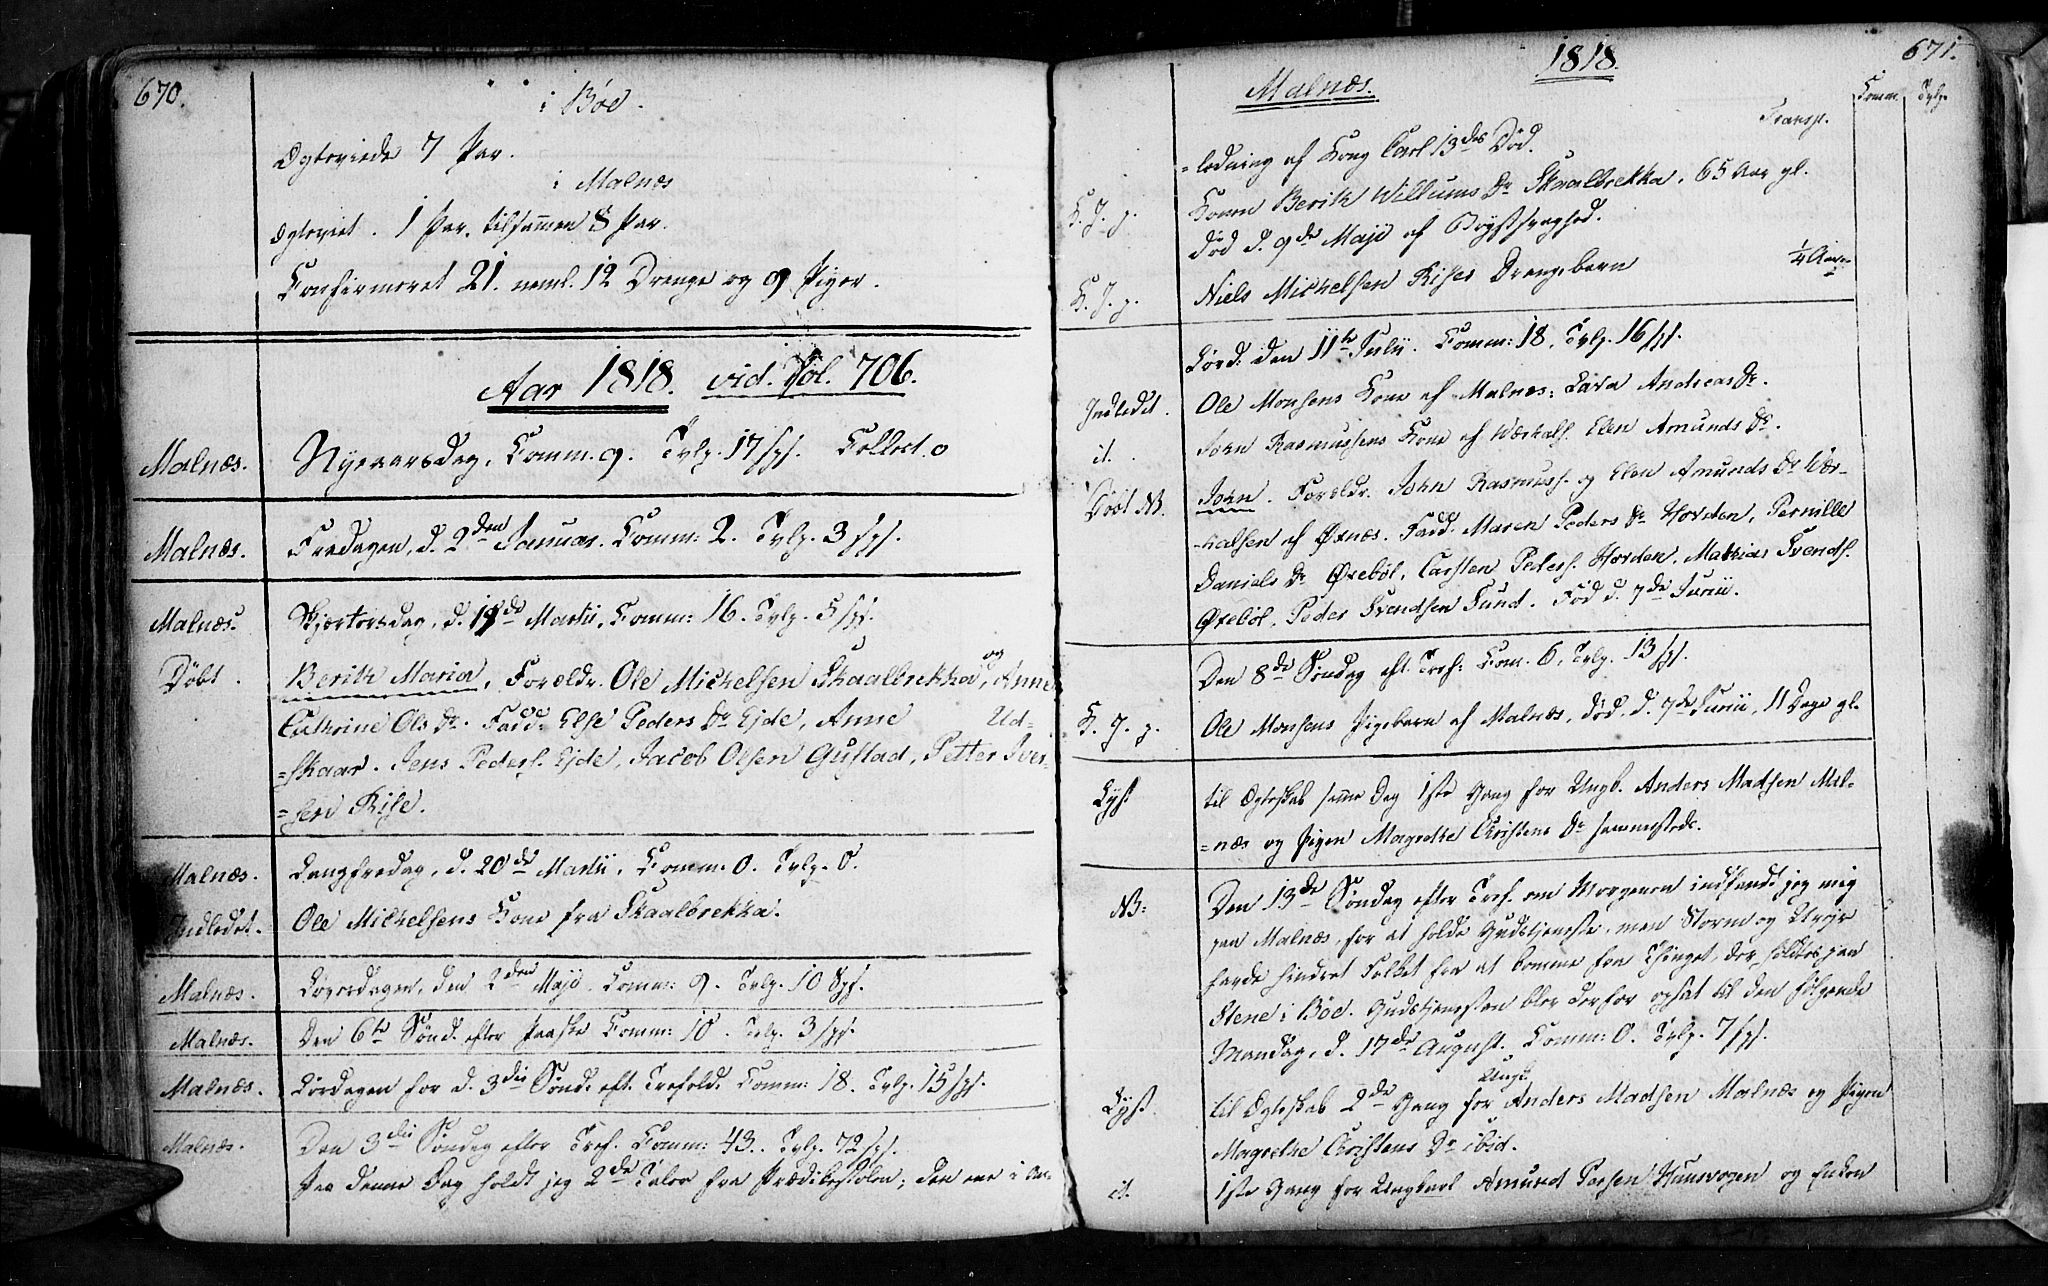 670.
i Bøe.
Ægteviede 7 Par.
i Malnæs
Ægteviet. 1 Par. tilsammen 8 Par.
Confirmeret 21. neml. 12 Drenge og 9 Piger.
Aar 1818. vid. Fol. 706.
Malnæs. Nyeaarsdag, Comm. 9. Tylg. 17 spf. Collect. 0
Malnæs. Fredagen, d. 2den Januar. Comm: 2. Tylg. 3 spf.
Malnæs. Skjærtorsdag, d. 19de Martii, Comm: 16. Tylg. 5 spf.
Døbt. Berith Maria, Forældr. Ole Mickelsen Skaalbrekka, og Anne
Cathrine Ols Dr. Fadd: Else Peders Dr Ejde, Anne Ud-
=skaar. Jens Peders. Ejde, Jacob Olsen Gustad, Petter Iver-
=sen Rise.
Malnæs. Langfredag, d. 20de Martii, Comm: 0. Tylg. 0.
Indledet. Ole Mickelsens Kone fra Skaalbrekka.
Malnæs. Løverdagen, den 2den Maji. Comm: 9. Tylg. 10 Spf.
Malnæs. Den 6te Sønd. efter Paaske Comm: 10. Tylg. 3 spf.
Malnæs. Lørdagen for d. 3die Sønd. eft. Trefold. Comm: 18. Tylg. 15 spf.
Malnæs. Den 3die Søndag efter Tref. Comm: 43. Tylg. 72 spf.
Paa denne Dag holdt jeg 2de Taler fra Prædikestolen; den ene i An-
1818. 671.
Malnæs.
Transp. Comm. Tylg.
=ledning af Kong Carl 13des Død.
K. J. p. Konen Berith Willums Dr Skaalbrekka, 65 Aar gl.
død d. 9de Maji af Brystsvaghed.
K. J. p. Niels Mickelsen Rises Drengebarn 1/4 Aar
Lørd. den 11te Julii. Comm: 18, Tylg. 16 spf.
Indledet. Ole Monsens Kone af Malnæs: Lava Andreas Dr.
it. John Rasmussens Kone af Værhals. Elen Amunds Dr.
Døbt NB. John. Forældr. John Rasmuss. og Elen Amunds Dr Vær-
-halsen af Øxnæs. Fadd. Maren Peders Dr Horden, Pernille
Daniels Dr Øxebøl, Carsten Peders. Horden, Mathias Svends.
Øxebøl, Peder Svendsen Sund. Fød d. 7de Junii.
Den 8de Søndag eft. Tref: Com. 6, Tylg. 13 spf.
K. J. p. Ole Monsens Pigebarn af Malnæs, død. d. 7de Junii, 11 Dage gl.
Lyst til Ægteskab samme Dag 1ste Gang for Ungk. Anders Madsen Mal-
=næs og Pigen Magrethe Christens Dr sammesteds.
NB: Den 13de Søndag efter Tref. om Morgenen indfandt jeg mig
paa Malnæs, for at holde Gudstjeneste, men Storm og Urojr
havde hindret Folket fra at komme fra Thinget, der holdtes paa
Stene i Bøe. Gudstjenesten blev derfor opsat til den følgende
Mandag, d. 17de August. Comm: 0. Tylg. 7 spf.
Lyst. til Ægteskab 2de Gang for Ungk. Anders Madsen Malnæs og Pigen
Magrethe Christens Dr ibid.
it. 1ste Gang for Ungkarl Amund Persen Hunsvogen og Enken